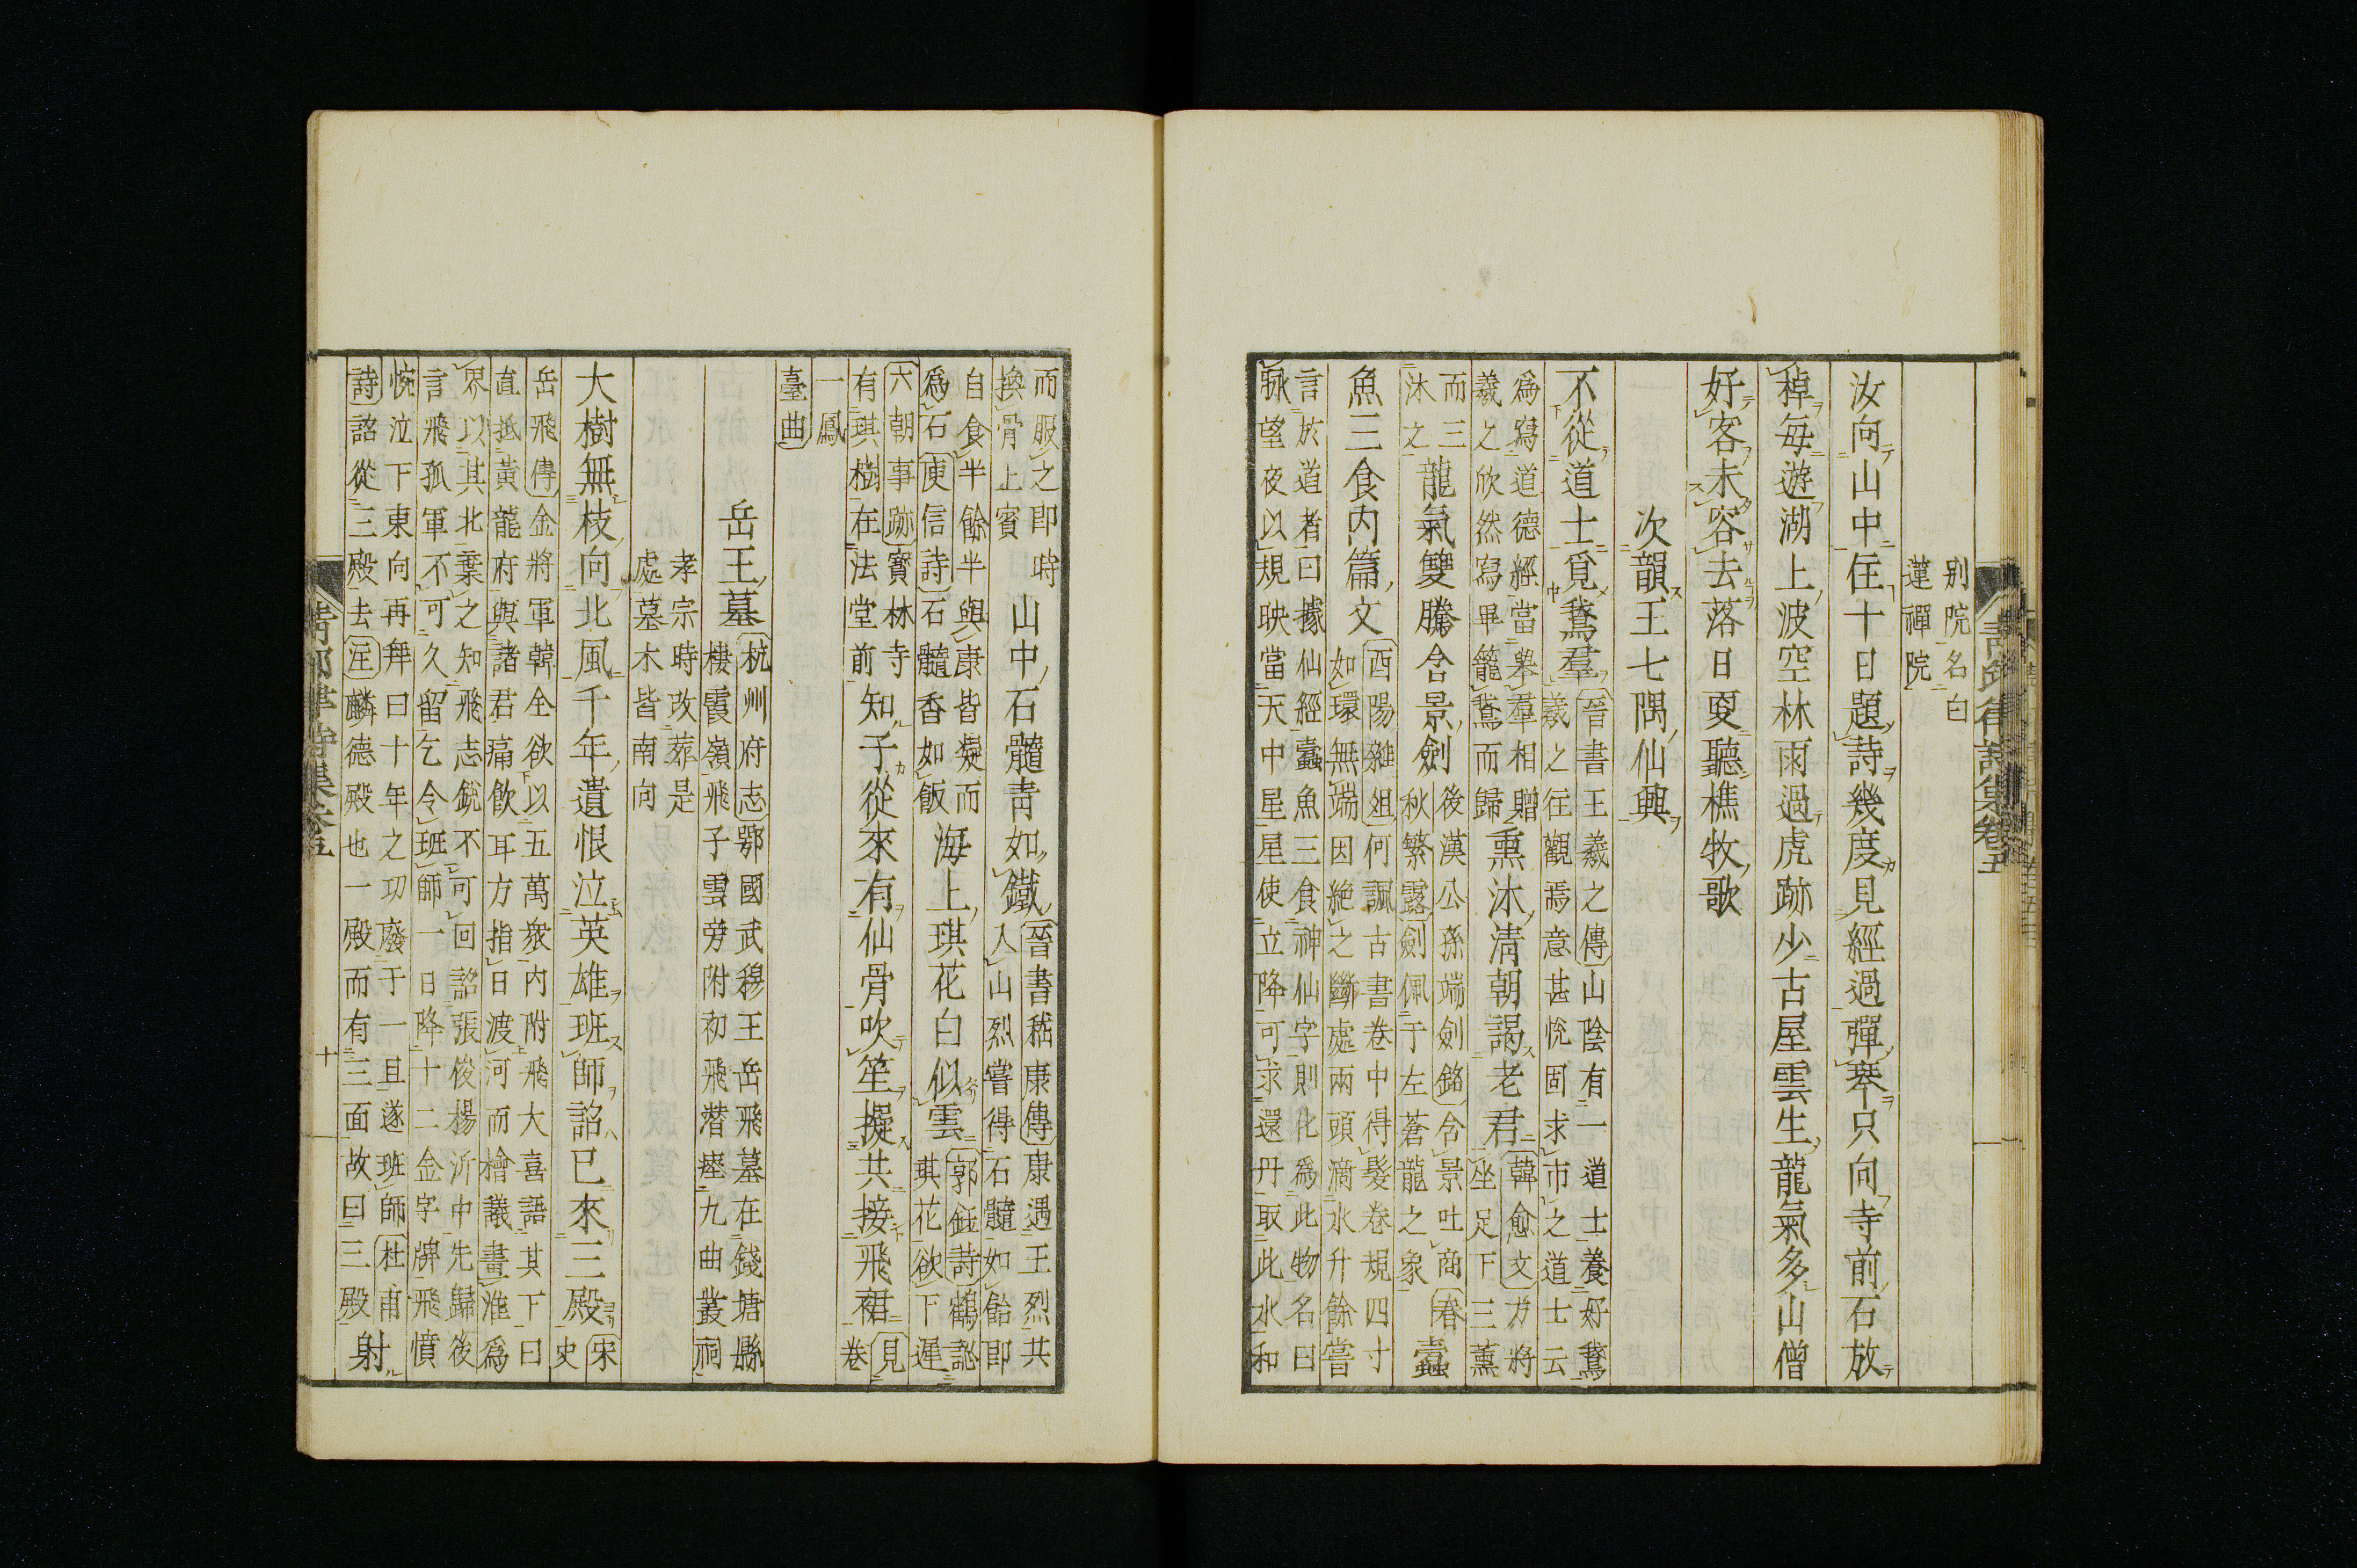 別院名白
蓮禪院
汝向山中住十日題詩幾度見經過彈琴只向寺前石放
棹每遊湖上波空林雨過虎跡少古屋雲生龍氣多山僧
好客未容去落日更聽樵牧歌
次韻王七隅仙興
不從道士覓鵞羣
晉書王羲之傳山陰有一道士養好鵞
羲之往觀焉意甚悅固求市之道士云
爲寫道德經當舉羣相贈
羲之欣然寫畢籠鵞而歸
熏沐淸朝謁老君
韓愈文方將
坐足下三薰
而三
沐之
龍氣雙騰含景劍
後漢公孫端劍銘含景吐商春
秋繁露劍佩于左蒼龍之象
蠹
魚三食內篇文
酉陽雜俎何諷古書卷中得髮卷規四寸
如環無端因絶之斷處兩頭滴水升餘嘗
言於道者曰據仙經蠹魚三食神仙字則化爲此物名曰
脉望夜以規映當天中星星使立降可求還丹取此水和
而服之卽時
換骨上賓
山中石髓靑如鐵
晉書嵇康傳康遇王烈共
入山烈嘗得石髓如飴卽
自食半餘半與康皆凝而
爲石庾信詩石髓香如飯
海上琪花白似雲
郭鈺詩鶴訟
琪花欲下遲
六朝事跡寶林寺
有琪樹在法堂前
知子從來有仙骨吹笙擬共接飛裙
見
卷
一鳳
臺曲
岳王墓
杭州府志鄂國武穆王岳飛墓在錢塘縣
棲霞嶺飛子雲旁附初飛潛瘞九曲叢祠
孝宗時改葬是
處墓木皆南向
大樹無枝向北風千年遺恨泣英雄班師詔已來三殿
宋
史
岳飛傳金將軍韓全欲以五萬衆內附飛大喜語其下曰
直抵黃龍府與諸君痛飮耳方指日渡河而檜議畫淮爲
界以其北棄之知飛志銳不可回詔張俊楊沂中先歸後
言飛孤軍不可久留乞令班師一日降十二金字牌飛憤
惋泣下東向再拜曰十年之功廢于一旦遂班師杜甫
詩詔從三殿去注麟德殿也一殿而有三面故曰三殿
射
靑邱律詩集卷五
十